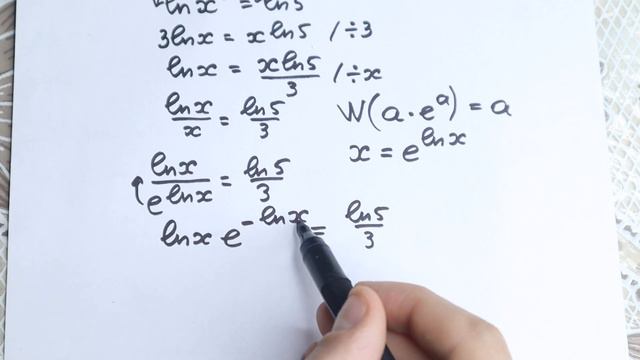 3lnx = x ln5 /÷3
lnx = xln5/3 /÷x
lnx/x = ln5/3
W(a·e^a) = a
x = e^lnx
lnx/e^lnx = ln5/3
lnx e^-lnx = ln5/3